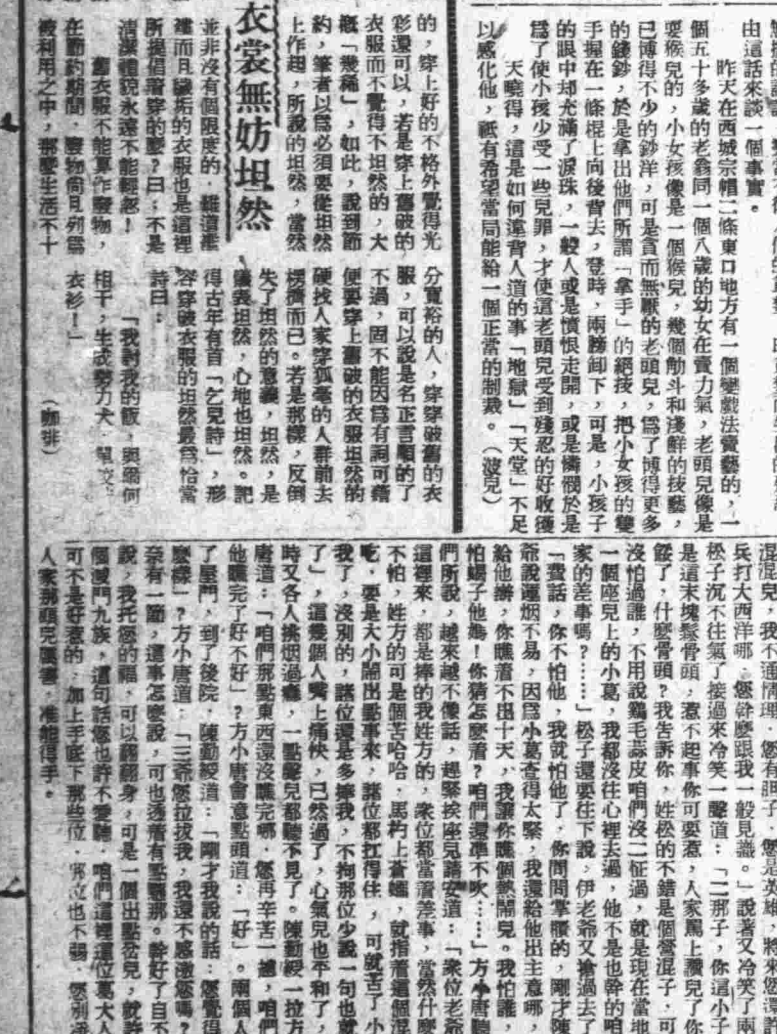 由這話來談一個事實。
昨天在西城宗帽二條東口地方有一個變戲法賣藝的，一
個五十多歲的老翁同一個八歲的幼女在賣力氣，老頭兒像是
耍猴兒的，小女孩像是一個猴兒，幾個觔斗和淺鮮的技藝，
已博得不少的鈔洋，可是貪而無厭的老頭兒，爲了博得更多
的錢鈔，於是拿出他們所謂「拿手」的絕技，把小女孩的雙
手握在一條棍上向後背去，登時，兩膀卸下，可是，小孩子
的眼中却充滿了淚珠，一般人或是憤恨走開，或是憐憫於是
爲了使小孩少受一些兒罪，才使這老頭兒受到殘忍的好收穫
天曉得，這是如何違背人道的事「地獄」「天堂」不足
以感化他，祗有希望當局能給一個正當的制裁。（波兒）
衣裳無妨坦然
的，穿上好的不格外覺得光
彩還可以，若是穿上舊破的
衣服而不覺得不坦然的，大
概「幾稀」，如此，說到節
約，筆者以爲必須要從坦然
上作起，所說的坦然，當然
並非沒有個限度的，難道襤
褸而且髒垢的衣服也是這裡
所提倡着穿的麼？曰：不是
清潔禮貌永遠不能輕忽！
舊衣服不能算作廢物，
在節約期間，廢物尚且列爲
被利用之中，那麼生活不十
分寬裕的人，穿穿破舊的衣
服，可以說是名正言順的了
不過，固不能因爲有詞可藉
便要穿上舊破的衣服坦然的
硬找人家穿狐毫的人群前去
楞擠而已。若是那樣，反倒
失了坦然的意義，坦然，是
儀表坦然，心地也坦然。記
得古年有首「乞兒詩」，形
容穿破衣服的坦然最爲恰當
詩曰：
「我討我的飯，與爾何
相干，生成努力大，單
衣衫！」
（咖啡）
混混兒，我不通情理，您有胆子，您是英雄，將來您
兵打大西洋哪，您幹麼跟我一般見識。」說著又冷笑了兩
松子沉不住氣了接過來冷笑一聲道：「二那子，你這小子
是這末塊鬆骨頭，惹不起事你可要惹，人家罵上讚兒了你
餒了，什麼骨頭？我告訴你，姓松的不錯是個營混子，可
沒怕過誰，不用說鷄毛蒜皮咱們沒二怔過，就是現在當地
一個座兒上的小葛，我都沒往心裡去過，他不是也幹的咱
家的差事嗎？……」松子還要往下說，伊老爺又搶過去了
「費話，你不怕他，我就怕他了，你問問掌櫃的，剛才陳
爺說運烟不易，因爲小葛查得太緊，我還給他出主意哪，
給他辦，你瞧着不出十天，我讓你瞧個熱鬧兒。我怕誰，
怕蝎子他媽！你猜怎麼着？咱們還準不吹……」方小唐聽
們所說，越來越不像話，趕緊挨座兒請安道：「衆位老爺
這裡來，都是捧的我姓方的，衆位都當着差事，當然什麼
不怕，姓方的可是個苦哈哈，馬杓上蒼蠅，就指着這個混
吃，要是大小鬧出點事來，諸位都扛得住，可就苦了小
我了，沒別的，諸位還是多捧我，不拘那位少說一句也就
了」，這幾個人嘴上痛快，已然過了，心氣兒也平和了，
時又各人挑烟過癮，一點聲兒都聽不見了。陳勤綬一拉方
唐道：「咱們那點東西還沒瞧完哪，您再辛苦一趟，咱們
他瞧完了好不好」？方小唐會意點頭道：「好」。兩個人
了屋門，到了後院，陳勤綬道：「剛才我說的話，您覺得
麼樣」？方小唐道：「三爺您拉拔我，我還不感激您嗎？
奈有一節，這事怎麼說，可也透着有點懸那。幹好了自不
說，我托您的福，可以翻翻身，可是一個出點岔兒，就許
個滅門九族，這句話您也許不愛聽，咱們這裡這位葛大人
可不是好惹的，加上手底下那些位，那位也不弱，您別
人家那頭兒厲害，准能得手。